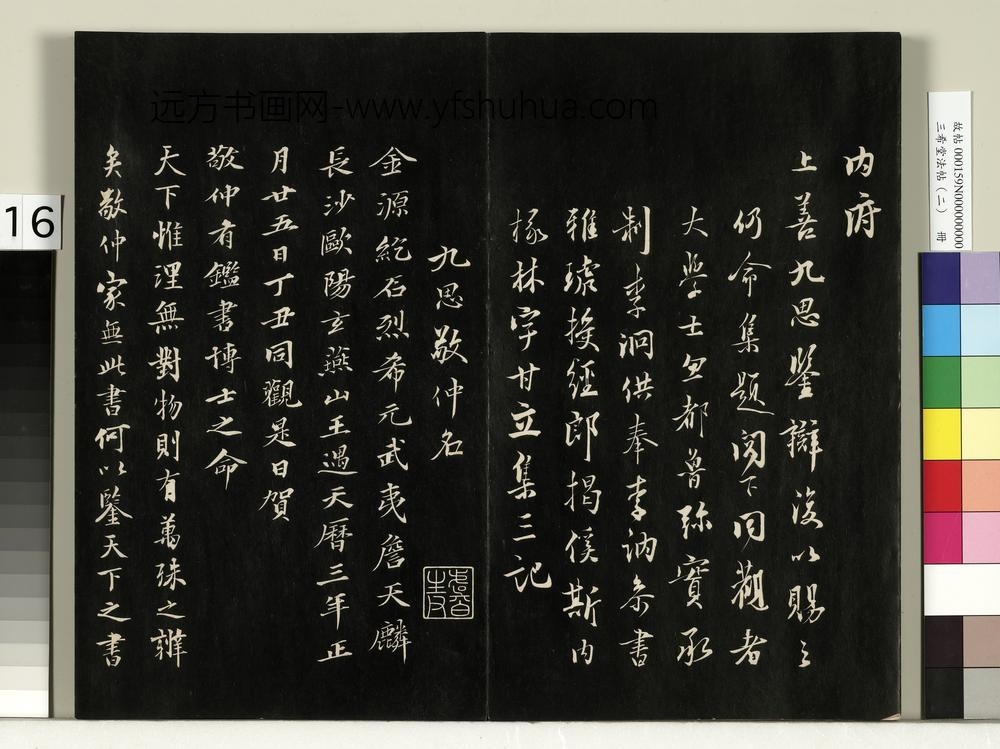 内府
上善九思鑒辯復以賜之
仍命集題閣下同觀者
大學士忽都魯弥實承
制李泂供奉李訥參書
雅琥授經郎揭傒斯内
掾林宇甘立集三記
九思敬仲名
金源紇石烈希元武夷詹天麟
長沙歐陽玄燕山王遇天曆三年正
月廿五日丁丑同觀是日賀
敬仲有鑑書博士之命
天下惟理無對物則有萬殊之辨
矣敬仲家無此書何以鑒天下之書
远方书画网-www.yfshuhua.com
16
故帖 000159N000000000
三希堂法帖（二） 冊